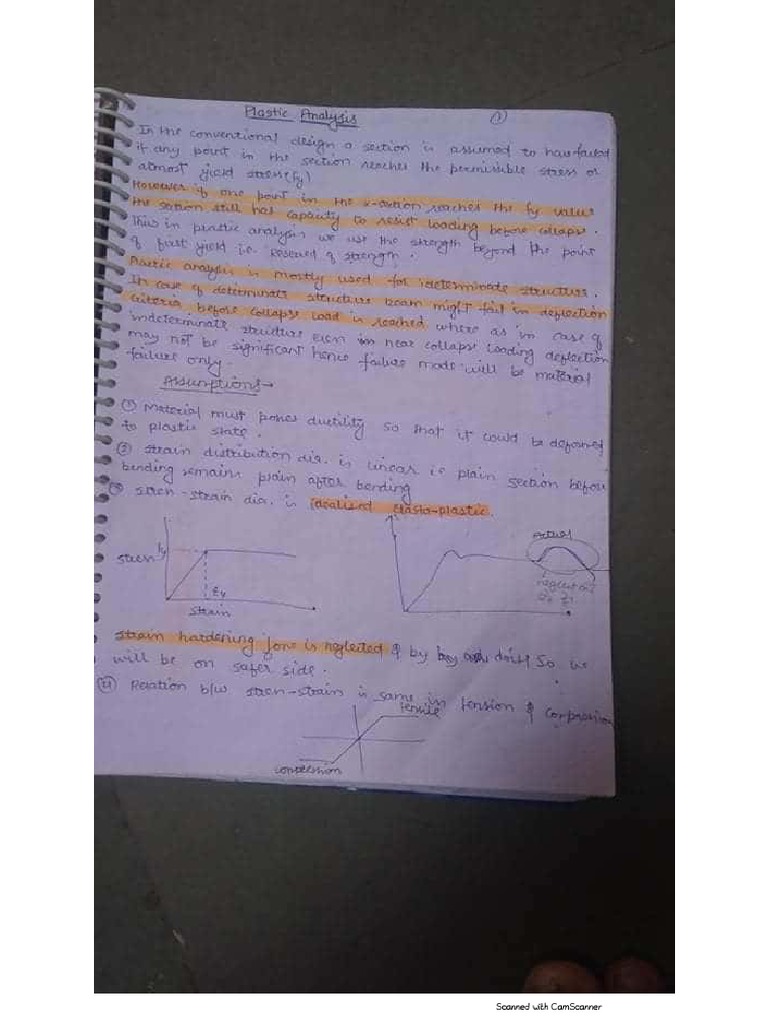 Plastic Analysis
①
In the conventional design a section is assumed to have failed
if any point in the section reaches the permissible stress or
almost yield stress (fy)
However if one point in the x-section reached the fy value
the section still has capacity to resist loading before collaps.
Thus in plastic analysis we use the strength beyond the point
of first yield i.e. Reserved of strength.
Plastic analysis is mostly used for indeterminate structure.
In case of determinate structure beam might fail in deflection
criteria before collaps load is reached where as in case of
indeterminate structure even in near collaps loading deflection
may not be significant hence failure mode will be material
failure only
Assumptions →
① Material must poses ductility so that it could be deformed
to plastic state.
② strain distribution dia. is linear ie plain section before
bending remains plain after bending
③ stress-strain dia. is idealised elasto-plastic.
Actual
stress
fy
εy
strain
neglect
strain hardening zone is neglected & by doing so we
will be on safer side.
④ Relation b/w stress-strain is same in tension & compression
tensile
compression
Scanned with CamScanner